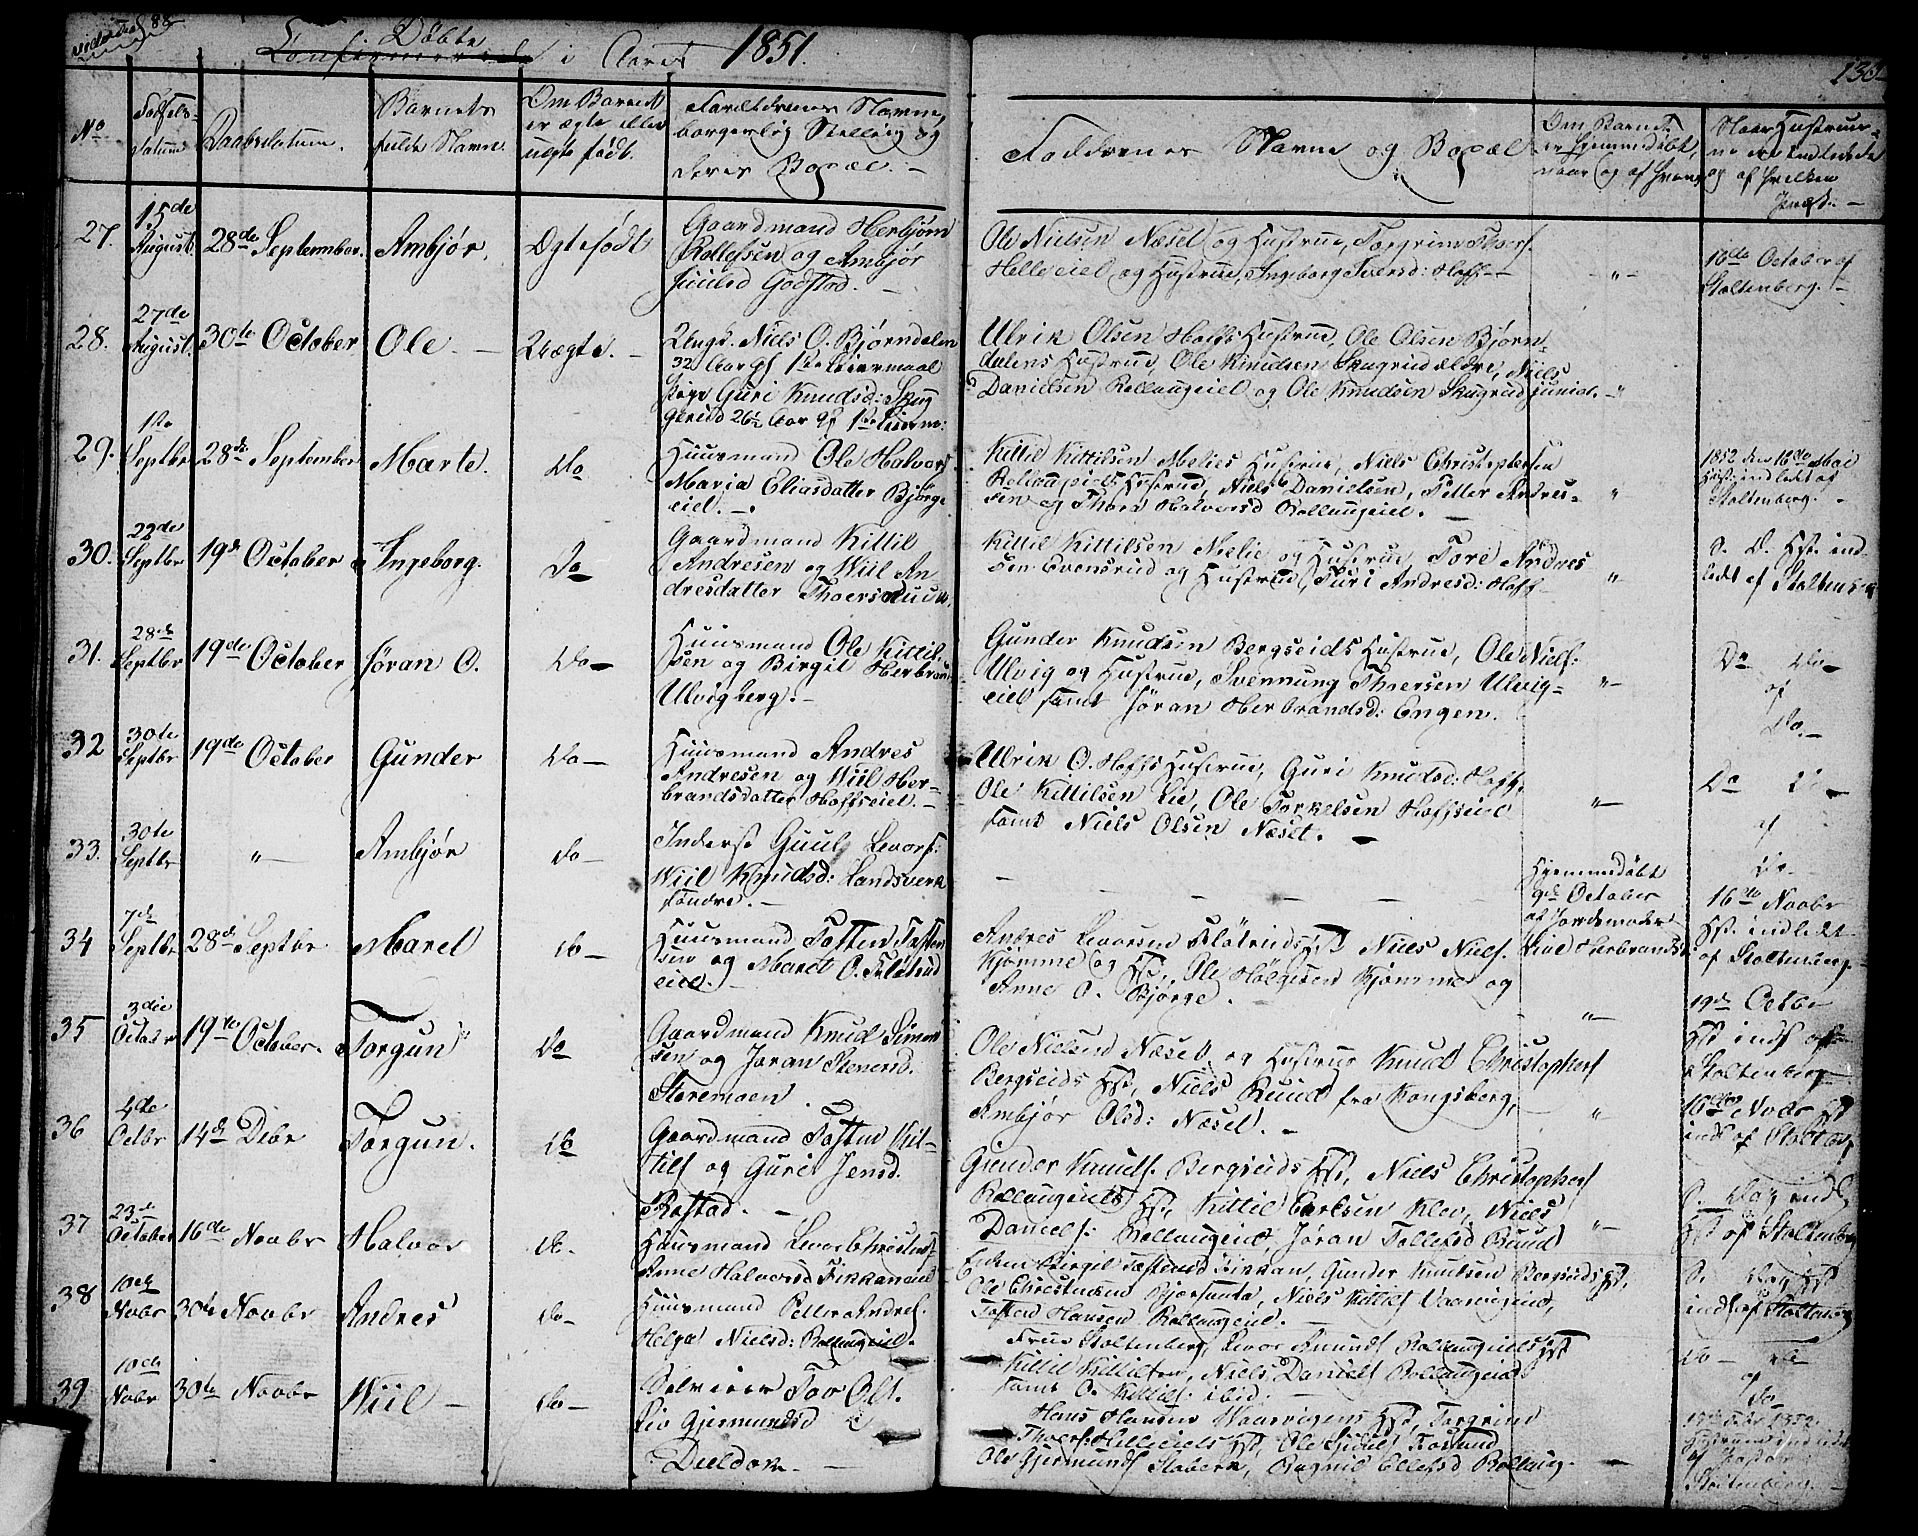 Døbte
Confirmerede i Aaret 1851.
130
No
Fødsels-
datum
Daabsdatum.
Barnets
fulde Navn.
Om Barnet
er ægte eller
uægte født.
Forældrenes Navne,
borgerlig Stilling og
deres Bopæl. -
Faddernes Navne og Bopæl
Om Barnet
er hjemmedøbt,
naar og af hvem
af hvilken
Præst. -
27.
15de
August
28de September.
Ambjør.
Ægtefødt
Gaardmand Herbjørn
Rollefsen og Ambjør
Juulsd Godstad. -
Ole Nielsen Næset og Hustrue, Torgrim Thors.
Helleeiet og Hustrue, Ingeborg Iversd: Hoff -
16de October af
Stoltenberg. -
28.
27de
August.
30te October
Ole. -
Uægte. -
Ungk. Niels O. Bjørndalen
32 Aar gl 1ste Leiermaal
Pige Guri Knudsd: Skug
gerud 26½ Aar gl 1ste Leierm:
Ulrik Olsen Hoffs Hustrue, Ole Olsen Bjørn-
dalens Hustrue, Ole Knudsen Skugrud ældre, Niels
Danielsen Rollaugeiet og Ole Knudsen Skugrud junior. -
29.
1ste
Septbr
28de September
Marte.
Do
Huusmand Ole Halvors
Maria Eliasdatter Bjørge
eiet. -
Kittil Kittilsen Melies Hustrue, Niels Christophersen
Rollaugeiets Hustrue, Niels Danielsen, Petter Andre-
sen og Thore Halvorsd Rollaugeiet. -
1852 den 16de Mai
Hust: indledt af
Stoltenberg. -
30.
22de
Septbr
19de October
Ingeborg.
Do
Gaardmand Kittil
Andresen og Wiil An
dresdatter Thoersruud.
Kittil Kittilsen Melie og Hustrue Tore Andres
sen Evensrud og Hustrue, Guri Andresd: Hoff -
S. D. Hst. ind-
ledt af Stoltenberg
31.
28de
Septbr
19de October
Jøran O.
Do -
Huusmand Ole Kittil
sen og Birgit Herbran
Ulvigberg. -
Gunder Knudsen Bergseids Hustrue, Ole Niels:
Ulvig og Hustrue, Svennung Thoersen Ulvig-
eiet samt Jøran Herbrandsd: Engen.
Do Do -
af
Do. -
32
30te
Septbr
19de October
Gunder
Do -
Huusmand Andres
Andresen og Wiil Her-
brandsdatter Hoffseiet. -
Ulrik O. Hoffs Hustrue, Guri Knudsd: Hoff,
Ole Kittilsen Lie, Ole Torkelsen Hoffseiet
samt Niels Olsen Næset. -
Do
af
33.
30te
Septbr
" -
Ambjør
Do -
Inderst Guul Levors:
Wiil Knudsd: Landsverk
søndre. -
Hjemmedøbt
9de October
af Jordemoder
Wiil Herbrandsd
34
7de
Septbr
28de Septbr
Maret
do -
Huusmand Tosten Tosten
sen og Maret O. Flåtrud
eiet.
Andres Levorsen Flåtruds Hst Niels Niels.
Kjømme og Hst, Ole Helgesen Kjømme og
Anne O. Bjørge. -
16de Novbr
Hst. indledt
af Stoltenberg.
35
3die
Octobr
19de October.
Torgun
Do
Gaardmand Knud Simen
sen og Jøran Stenersd.
Storemoen.
Ole Nielsen Næset og Hustrue Knud Christophers
Bergseids Hst, Niels Ruud fra Kongsberg,
Ambjør Olsd: Næset. -
19de Octbr
Hst inds af
Stoltenberg
36
4de
Octbr
14de Debr
Torgun.
Do
Gaardmand Tosten Kit-
tils og Guri Jensd.
Rostad. -
Gunder Knuds. Bergseids Hst, Niels Christophers
Rollaugeiets Hst, Kittil Carlsen Klev, Niels
Daniels. Rollaugeiet, Jøran Tollefsd Ruud
16de Novbr Hst
inds af Stoltenb
37
23de
October
16de Novbr
Halvor
Do.
Huusmand Levor Christens.
Anne Halvorsd Fikkaneiet
Enken Birgit Tostensd Fikkan, Gunder Knudsen Bergseids Hst,
Ole Christensen Bjørtunta, Niels Kittils Vaarvigeiet,
Tosten Hansen Rollaugeiet. -
S. Dag inds
Hst af Stoltenberg
38
10de
Novbr
30te Novbr
Andres
Do -
Huusmand Petter Andres.
Helga Nielsd: Rollaugeiet.
Frue Stoltenberg, Levor Amunds Rollaugeiets Hst
Kittil Kittilsen, Niels Daniels Rollaugeiet
samt O. Kittils. ibid. -
S. Dag Hst
inds af Stoltenberg
39
10de
Novbr
30te Novbr
Wiil -
Do -
Selveier Tor Ols.
Liv Gjermundsd
Duldok. -
Hans Hansen Waarvigens Hst, Torgrim
Thoers: Helleeiets Hst, Ole Juuls Fosland
Ole Gjermunds Staberk, Ragnil Ellefsd Rollaug.
Do -
af
Do -
Stoltenberg. -